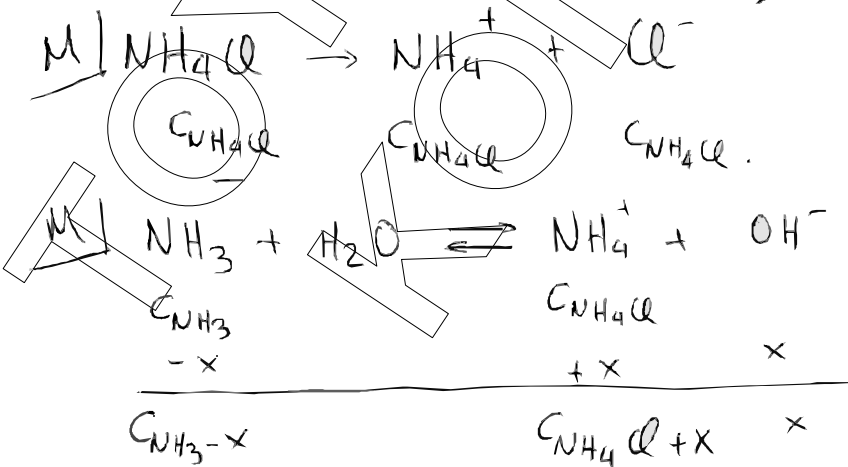 M| NH4Cl → NH4+ + Cl-
CNH4Cl CNH4Cl CNH4Cl .
M| NH3 + H2O ⇌ NH4+ + OH-
CNH3 CNH4Cl
- x + x x
CNH3-x CNH4Cl+x x